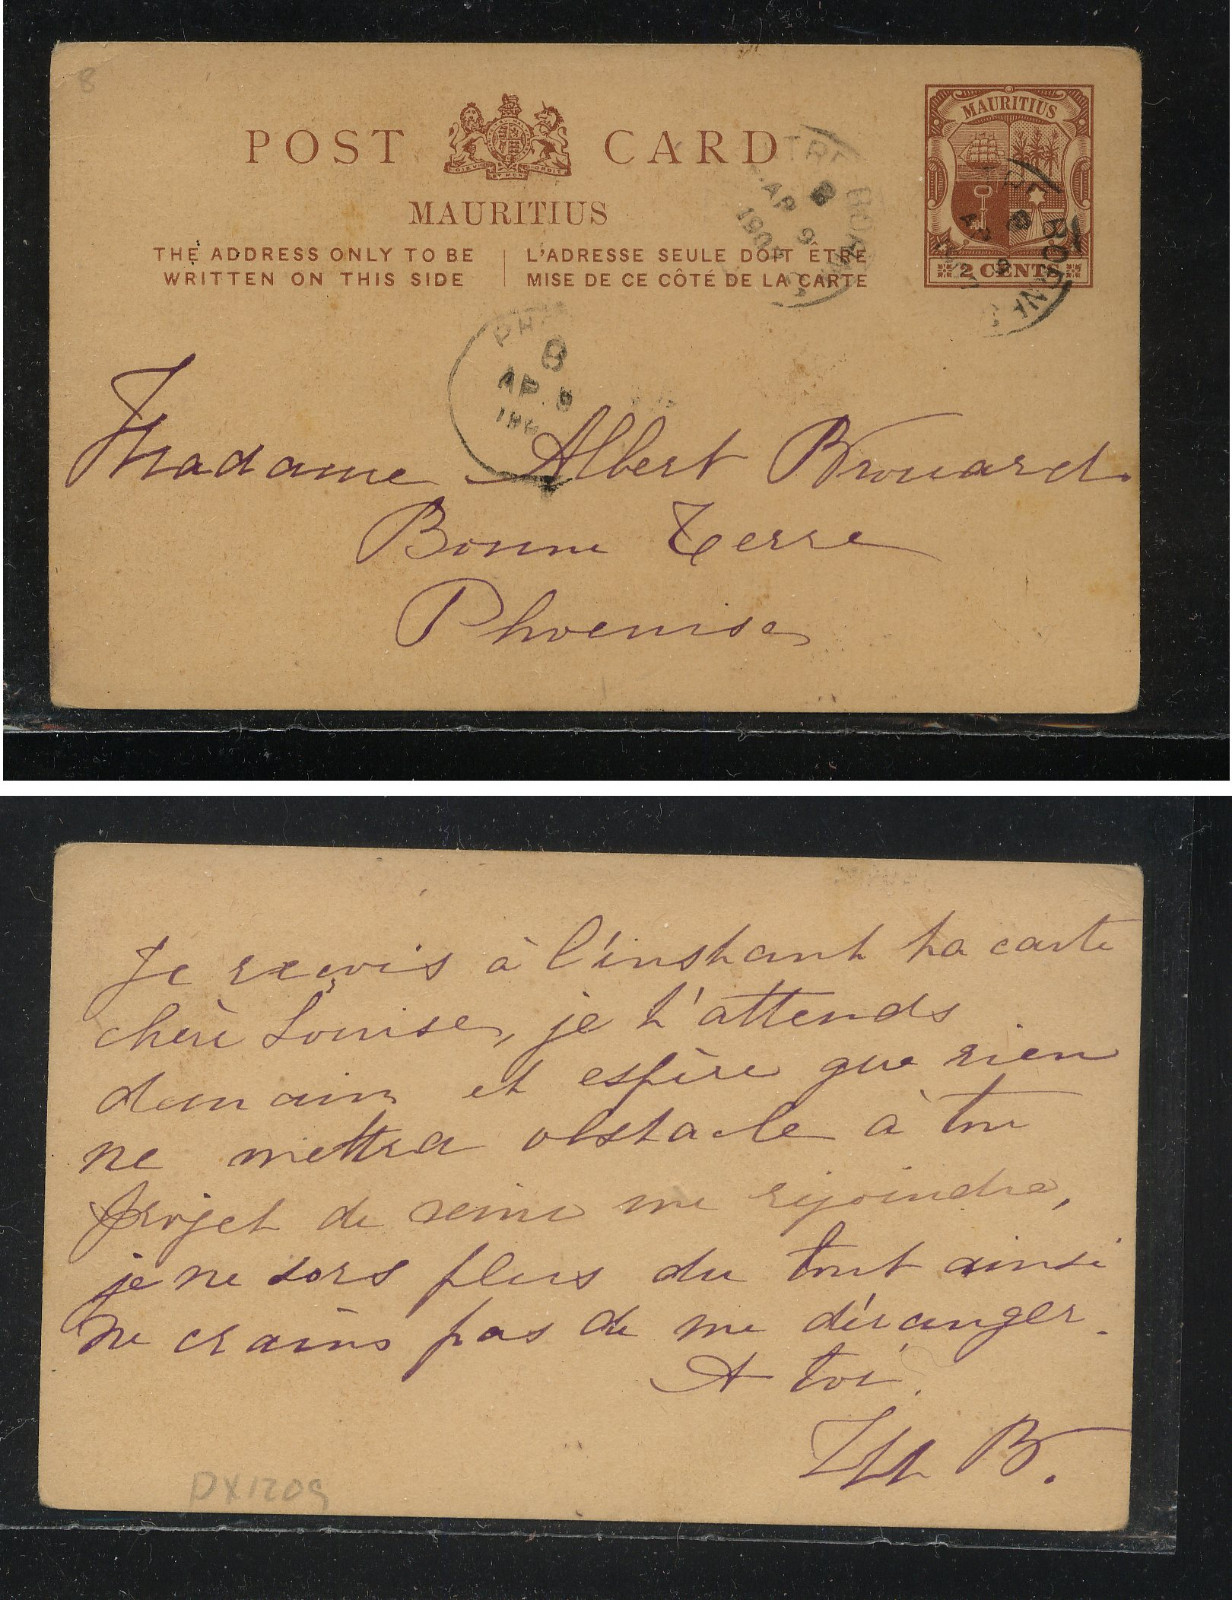 8
POST CARD
MAURITIUS
THE ADDRESS ONLY TO BE
WRITTEN ON THIS SIDE
L'ADRESSE SEULE DOIT ÊTRE
MISE DE CE CÔTÉ DE LA CARTE
MAURITIUS
2 CENTS
AP 9
190
AP 9
Madame Albert Brouard.
Bonne Terre
Phoenise
Je reçois à l'instant ta carte
chère Louise, je t'attends
demain et espère que rien
ne mettra obstacle à ton
projet de venir me rejoindre,
je ne sors plus du tout ainsi
ne crains pas de me déranger.
A toi.
B.
PX1209